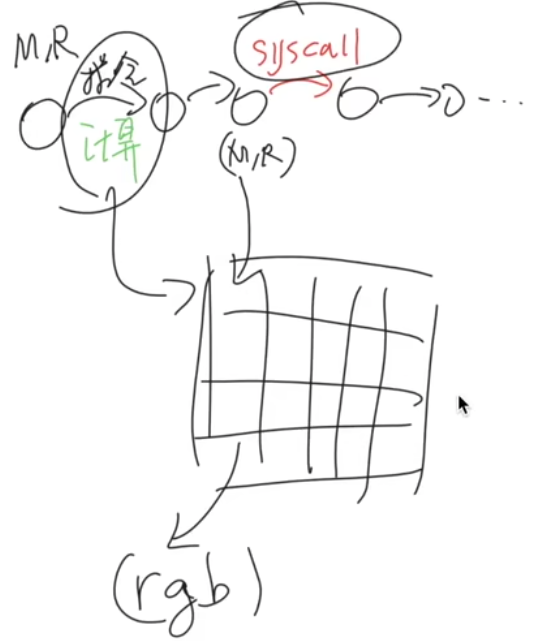 M,R
指令
计算
syscall
(M,R)
(rgb)